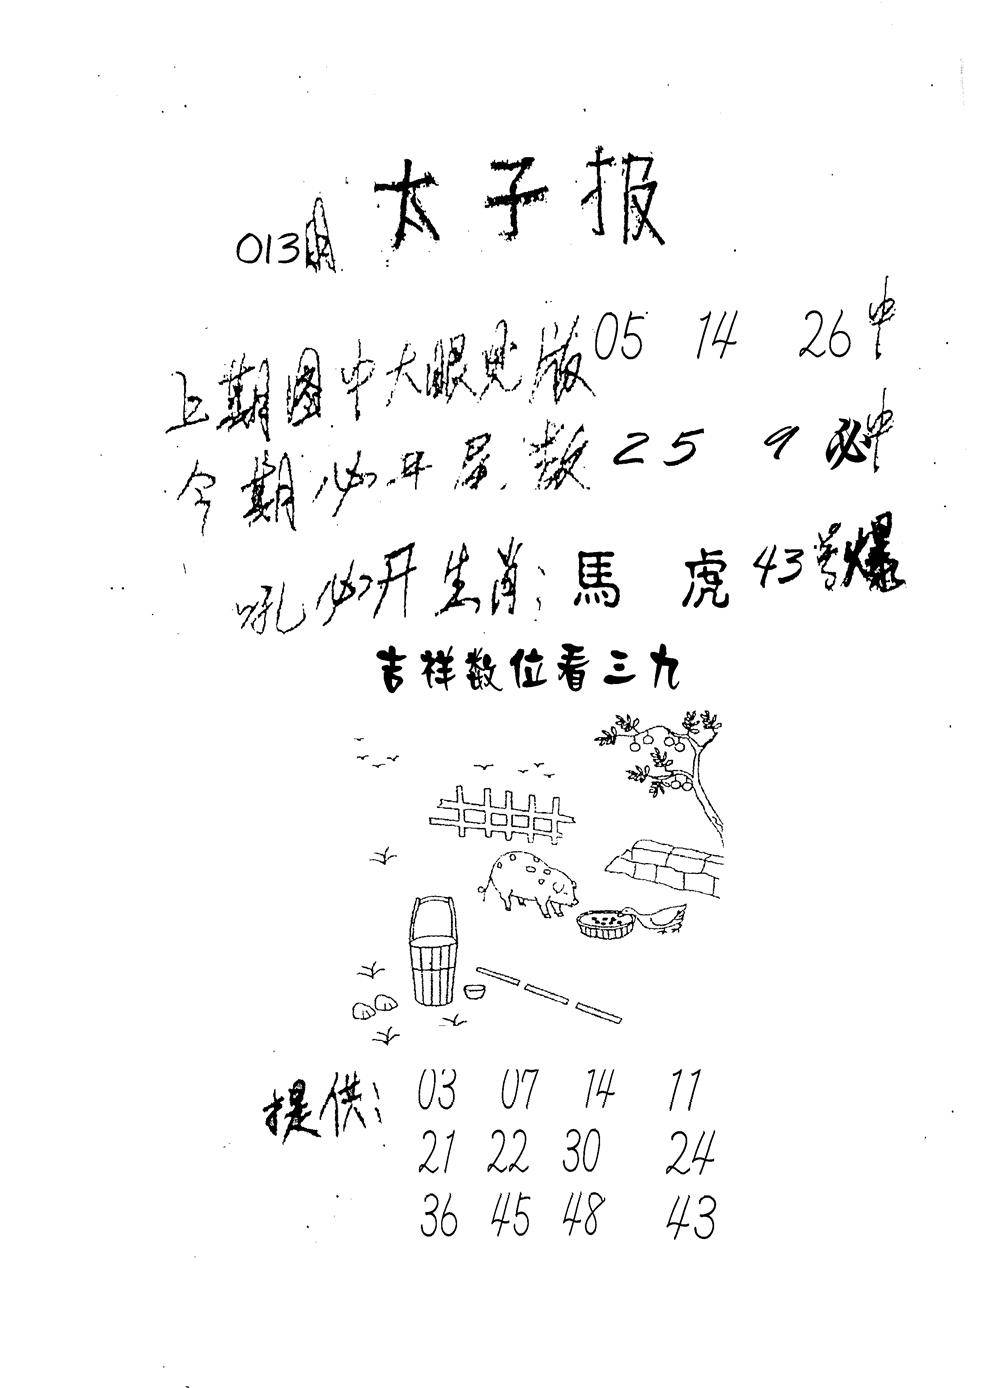 太子报
013期
上期图中大眼见版 05 14 26中
今期必开尾数 25 9 必中
吼必开生肖：馬 虎 43号爆
吉祥数位看三九
提供：
03 07 14 11
21 22 30 24
36 45 48 43